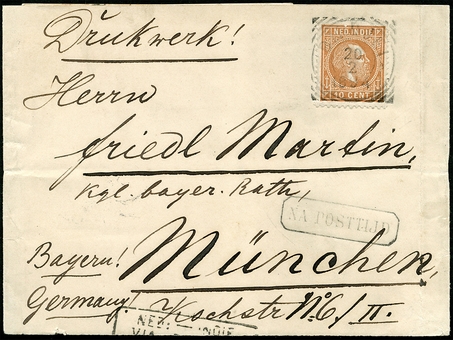 Drukwerk!
NED. INDIE
20
2
10 CENT
Herrn
friedl Martin,
kgl. bayer. Rath,
NA POSTTIJD
Bayern! München,
Germany! Kochstr No. 6/II.
NED. INDIE
VIA